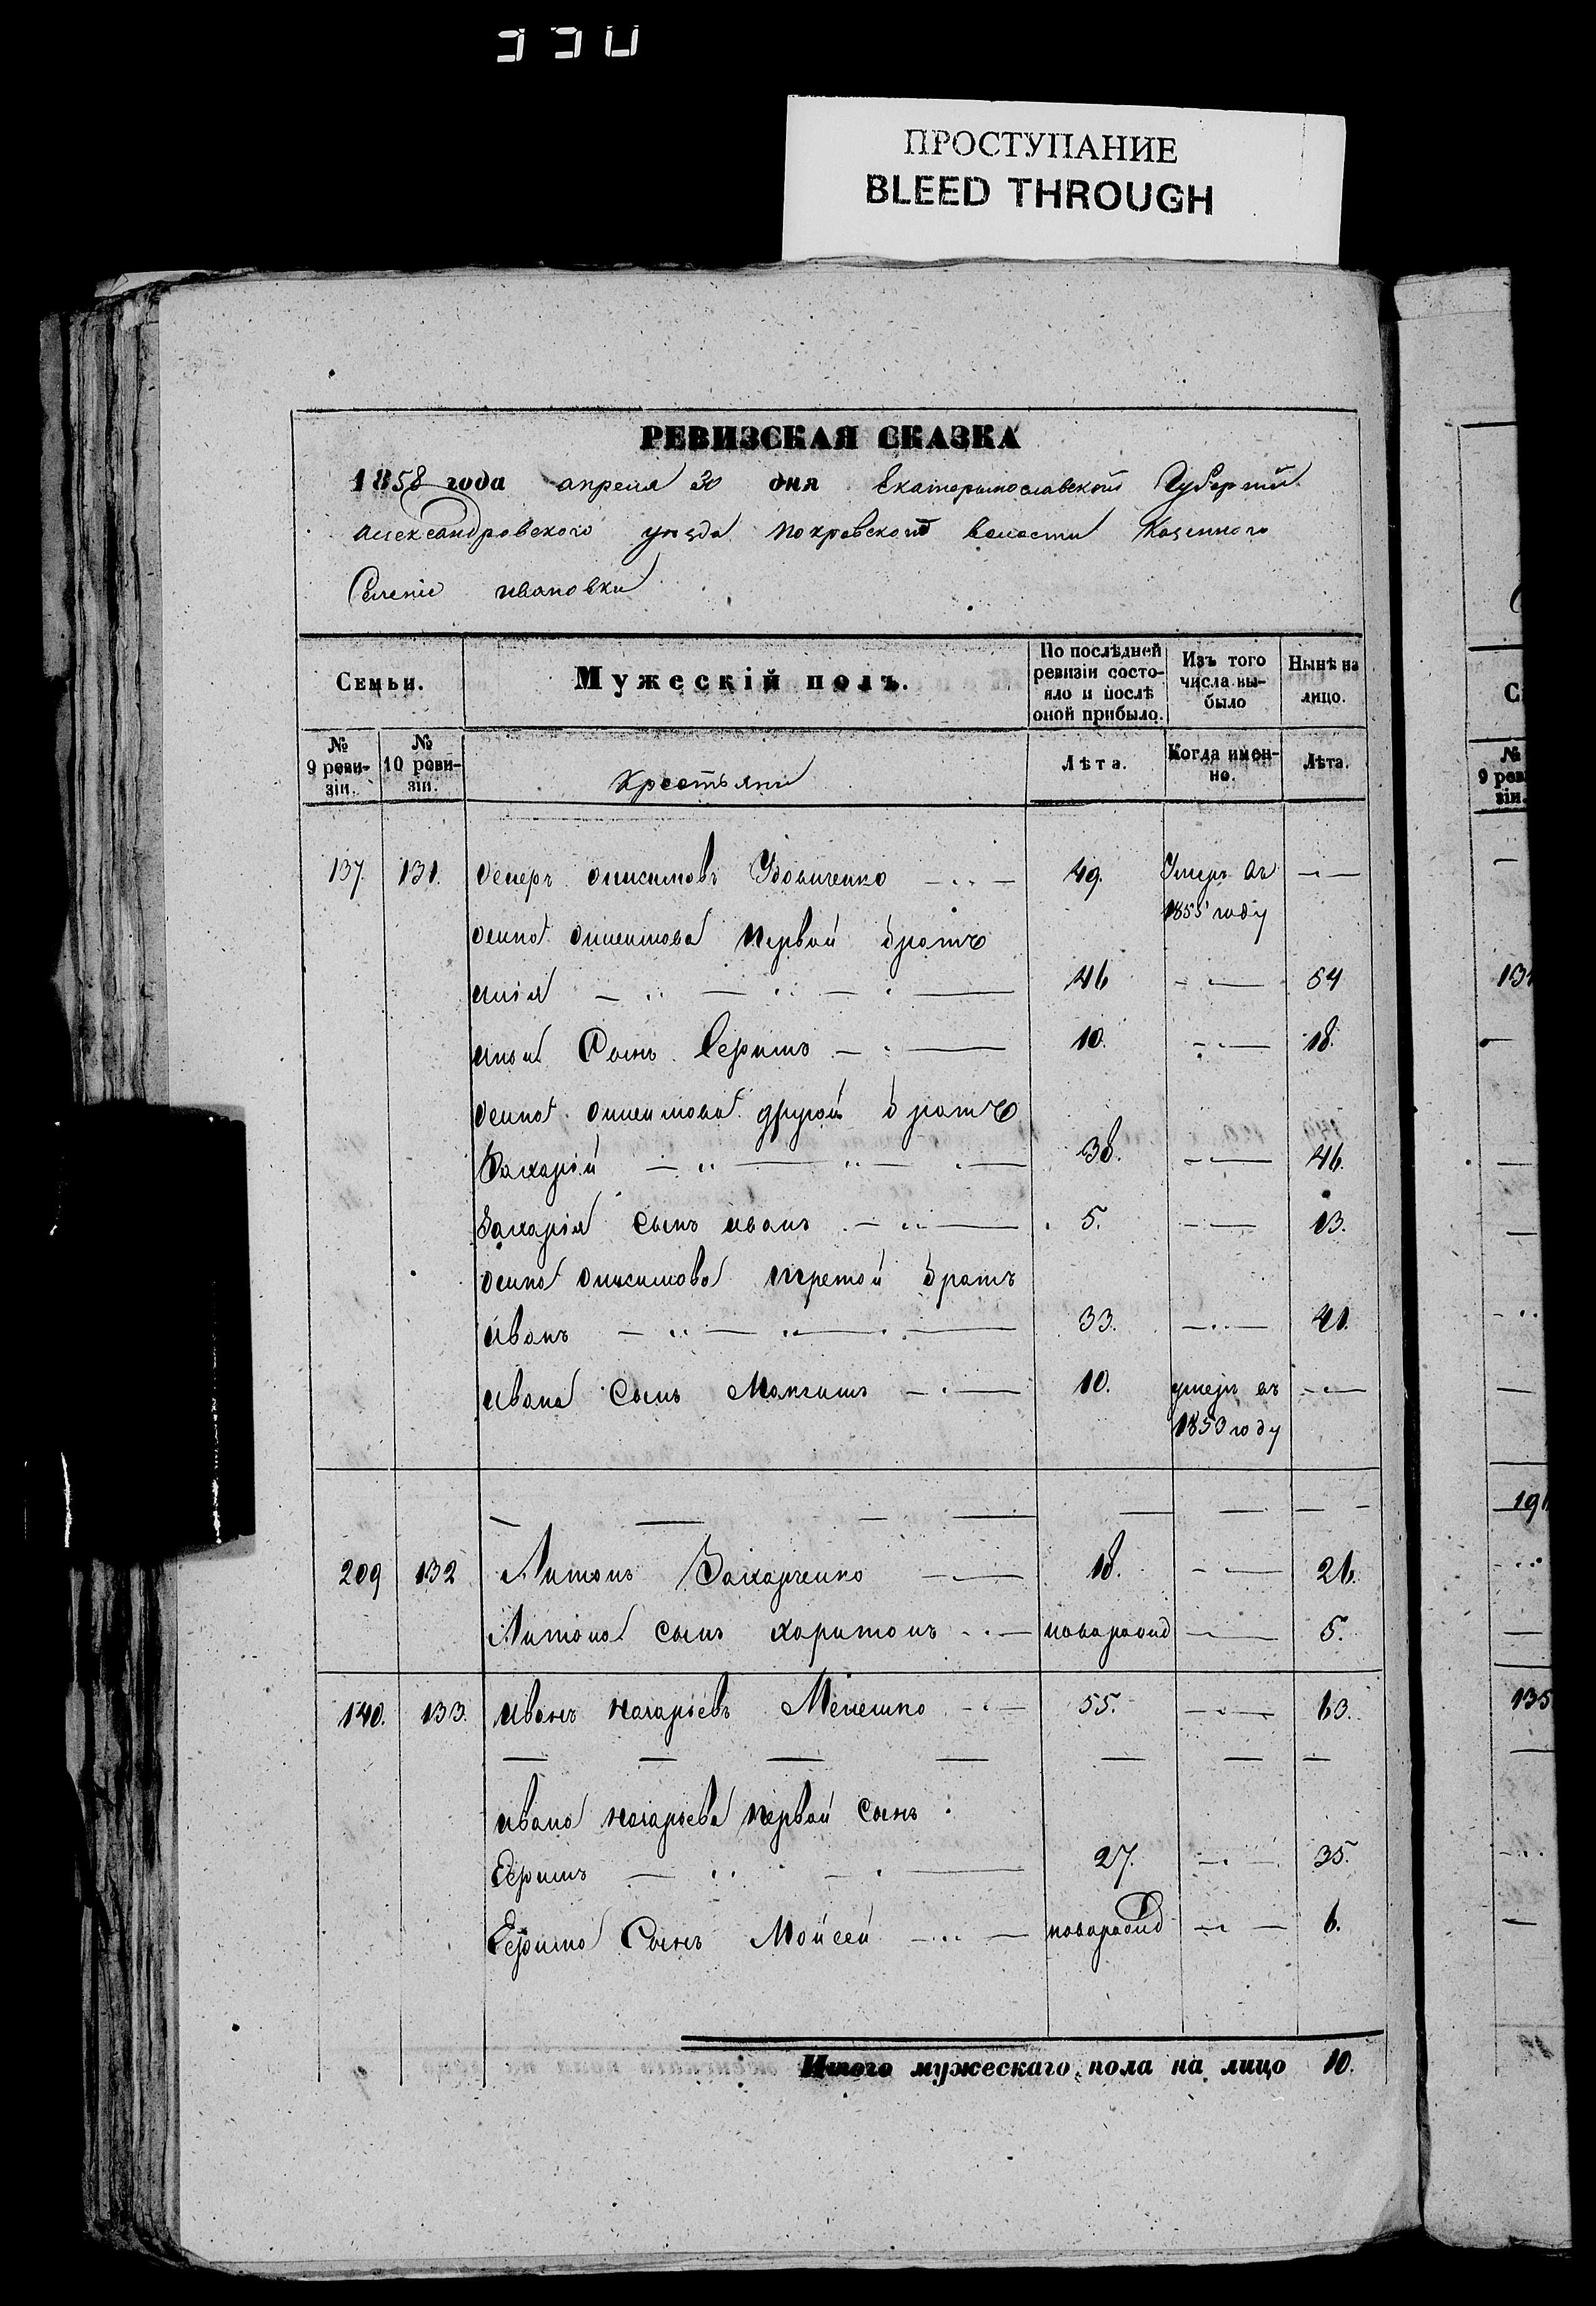 330
ПРОСТУПАНИЕ
BLEED THROUGH
РЕВИЗСКАЯ СКАЗКА
1858 года апреля 30 дня Екатеринославской Губернии
Александровского уезда Покровской волости Казенного
Селеніе Ивановки
Семьи. Мужескій полъ. По послѣдней ревизіи состояло и послѣ оной прибыло. Изъ того числа выбыло Нынѣ на лицо.
№ 9 ревизіи. № 10 ревизіи. Крестьяни Лѣта. Когда именно. Лѣта.
137. 131. Осипъ Онисимовъ Удовиченко 49. Умеръ въ
1855 году
Осипа Онисимова Первой братъ
46 54
Сынъ 10. 18.
Осипа Онисимова другой братъ
Захарій 38. 46.
Захарія сынъ иванъ 5. 13.
Осипа Онисимова третой братъ
иванъ 33. 41.
ивана Сынъ Максимъ 10. умеръ въ
1850 году
209 132 Антонъ Захарченко 18. 26.
Антона сынъ харитонъ новорожд 5.
140. 133. иванъ назарьевъ 55. 63.
ивана назарьева Первой Сынъ
Ефимъ 27. 35.
Ефима Сынъ Мойсей новорожд 6.
Итого мужескаго пола на лицо 10.
№
9 рев
зіи.
135